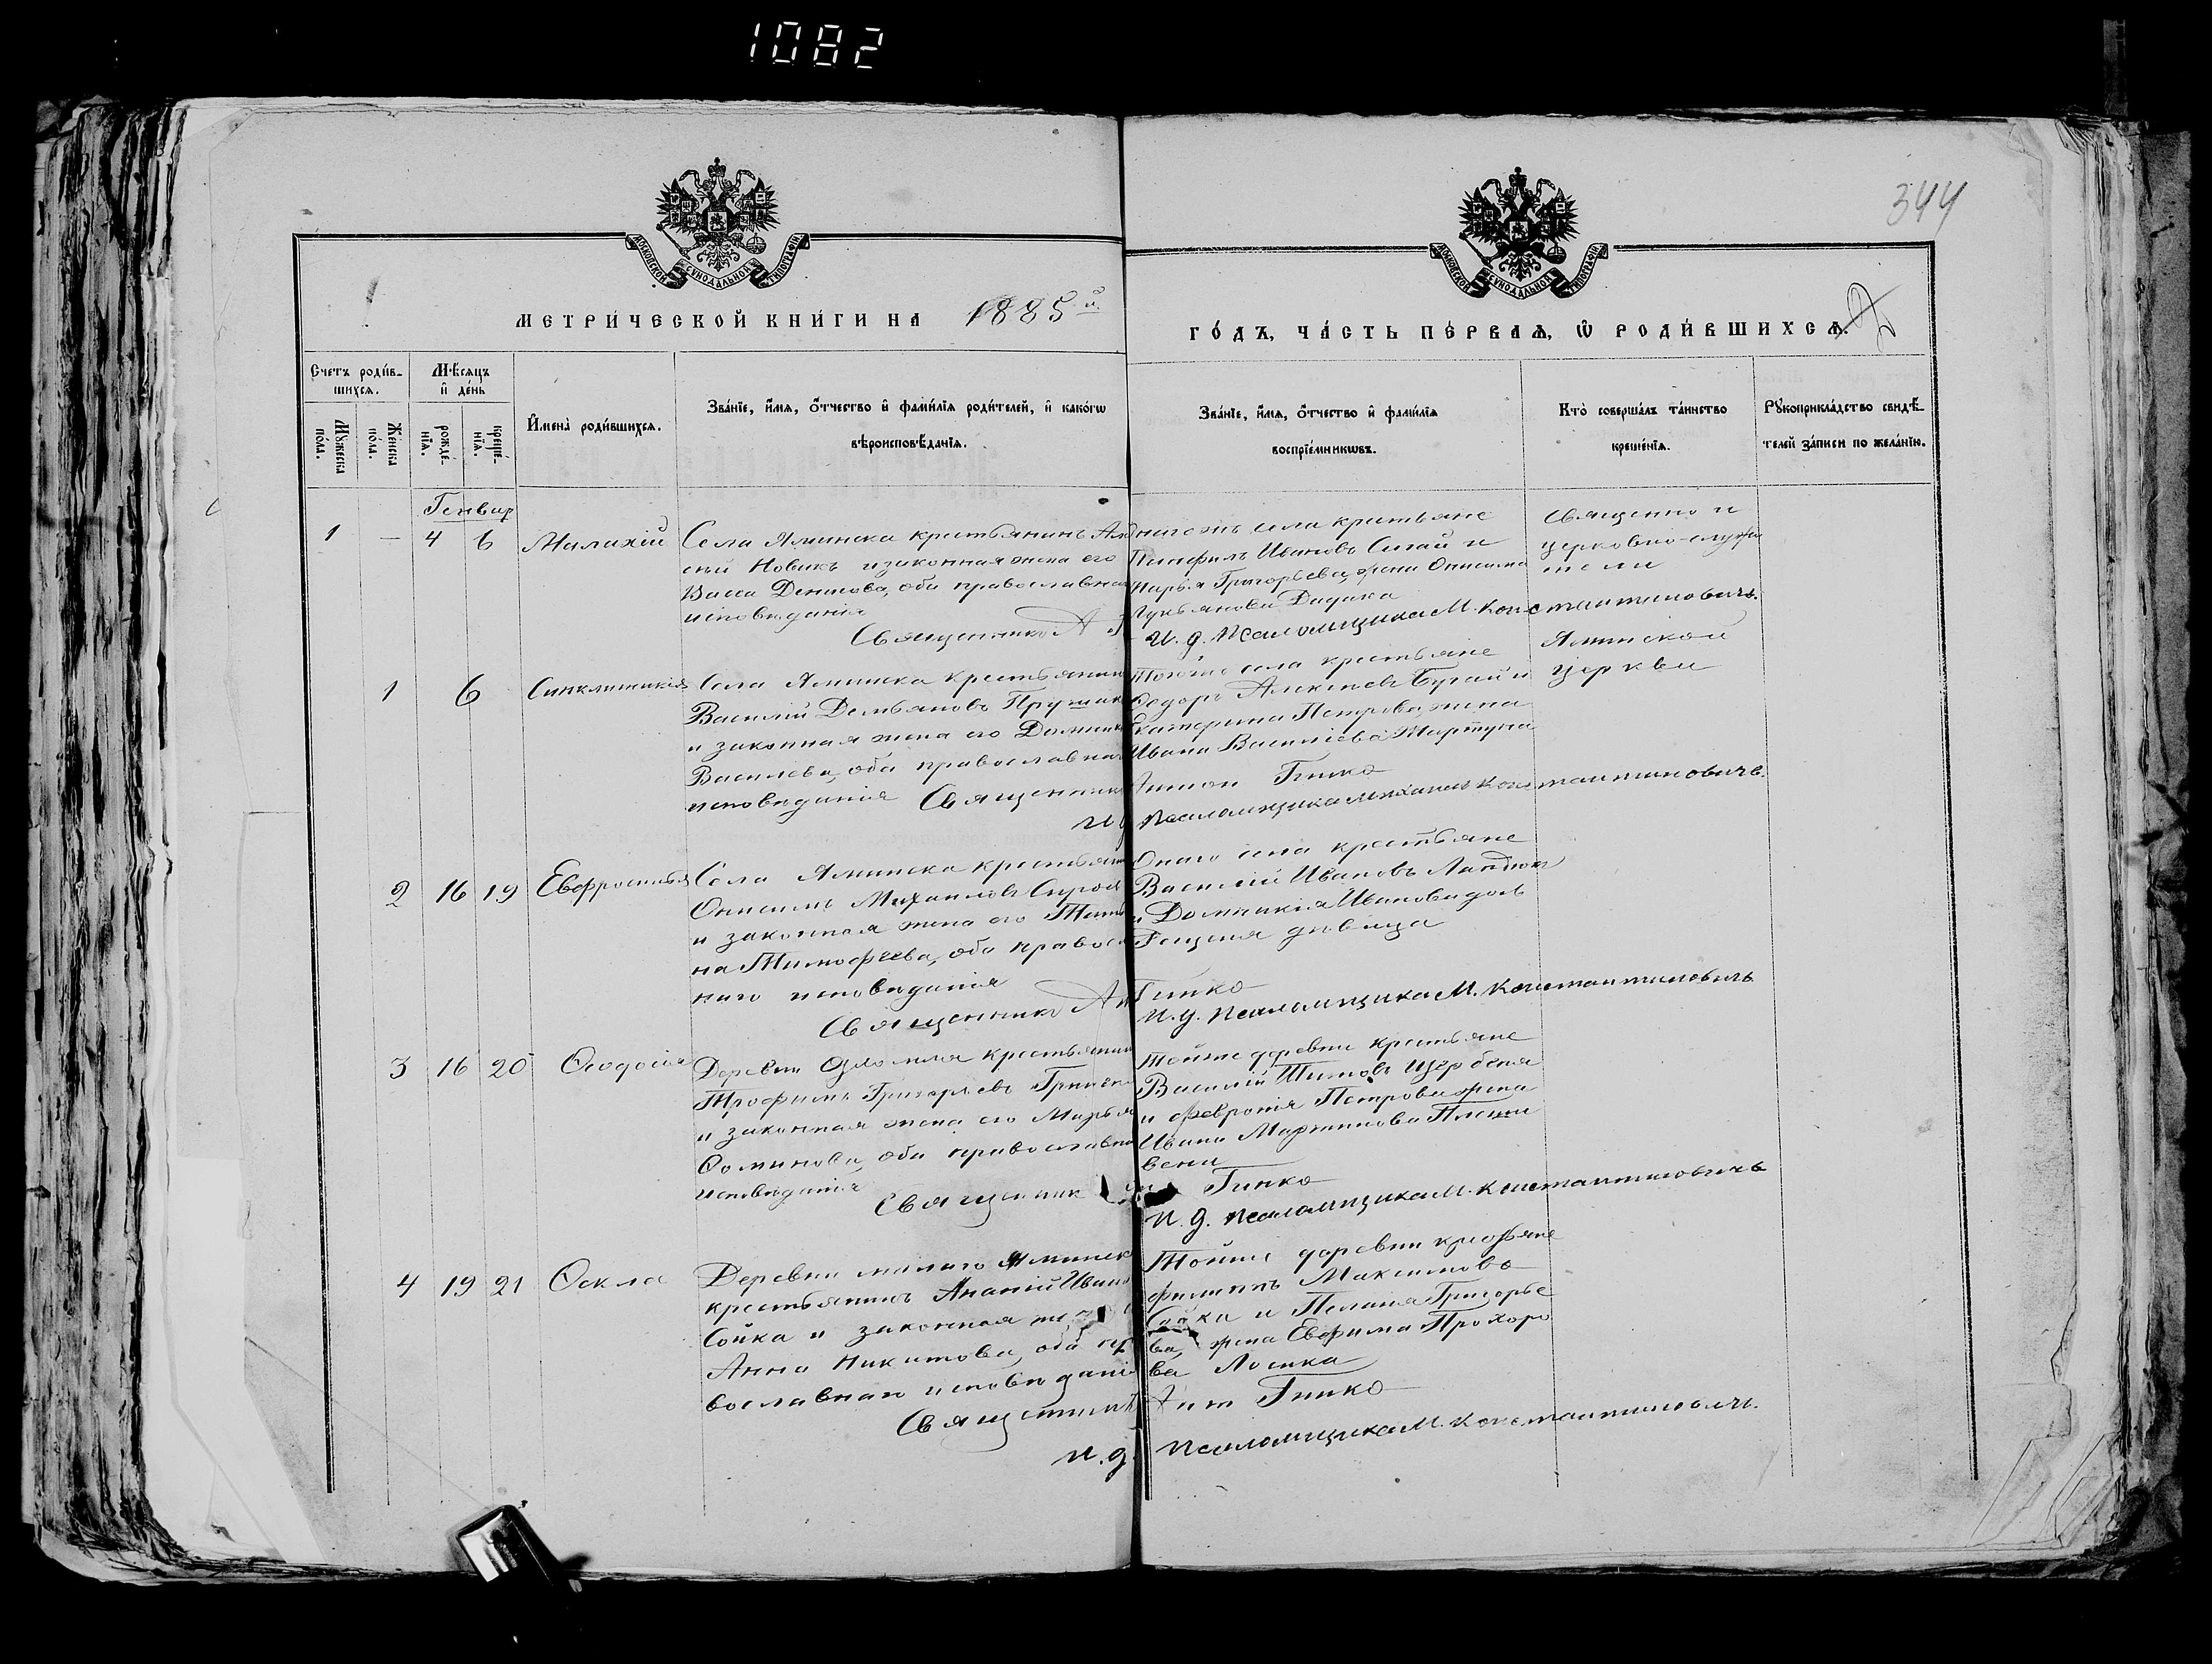 1082
344
МОСКОВСКОЙ СѴНОДАЛЬНОЙ ТИПОГРАФІИ
МОСКОВСКОЙ СѴНОДАЛЬНОЙ ТИПОГРАФІИ
МЕТРИ́ЧЕСКОЙ КНИ́ГИ НА 1885й
ГО́ДЪ, ЧА́СТЬ ПЕ́РВАѦ, Ѿ РОДИ́ВШИХСѦ.
Счетъ роди́в-
шихсѧ.
Мѣ́сѧцъ
и҆ де́нь
Мꙋ́жеска
по́ла.
Же́нска
по́ла.
рожде́-
нїѧ.
креще́-
нїѧ.
И҆мена̀ роди́вшихсѧ.
Зва́нїе, и҆́мѧ, о҆́тчество и҆ фами́лїѧ роди́телей, и҆ како́гѡ
вѣроисповѣ́данїѧ.
Зва́нїе, и҆́мѧ, о҆́тчество и҆ фами́лїѧ
воспрїе́мникѡвъ.
Кто̀ соверша́лъ та́инство
креще́нїѧ.
Рꙋкоприкла́дство свидѣ́-
телей за́писи по жела́нїю.
Генвар
1 — 4 6 Малахій
Села Яминска крестьянинъ
сій Новикъ и законная жена его
Васса Денисова, оба православна
исповѣданія
Священникъ А
села крестьяне
Памфилъ Ивановъ Сигай и
Марья Григорьева, жена Онисима
Лукьянова Дидика
И. д. псаломщика М. Константиновичъ.
Священно и
церковно-служи
тели
Яминской
церкви
1 6 Синклитикія
Села Яминска крестьянин
Василій Демьяновъ
и законная жена его Домник
Васильева, оба православна
исповѣданія Священник
и д
Тогоже села крестьяне
Ѳедоръ Алексѣевъ Бугай и
Екатерина Петрова, жена
Ивана Васильева Мартуна
Антон Гинко
псаломщика Михаилъ Константиновичъ.
2 16 19 Евфросинья
Села Яминска крестьян
Онисимъ Михаиловъ
и законная жена его Татья
на Тимофеева, оба правосл
наго исповѣданія
Священникъ Ан
Онаго села крестьяне
Василій Ивановъ Ландюк
и Домникія Иванова
дѣвица
Гинко
И. д. псаломщика М. Константиновичъ
3 16 20 Ѳеодосія
Деревни крестьянин
Трофимъ Григорьевъ
и законная жена его Марья
Ѳоминова, оба православна
исповѣданія
Священник
Тойже деревни крестьяне
Василій Титовъ Щербеня
и Февронія Петрова жена
Ивана Мартинова
вени
Гинко
И. д. псаломщика М. Константиновичъ
4 19 21 Ѳекла
Деревни малаго Яминск
крестьянинъ Ананій Ивано
Сойка и законная же
Анна Никитова, оба пр
вославнаго исповѣдані
Священникъ
И. д.
Тойже деревни крестьяне
Филиппъ Максимовъ
Сойка и Пелагія Григорье
ва, жена Евфима Прохоро
ва Лосика
Ант Гинко
псаломщика М. Константиновичъ.